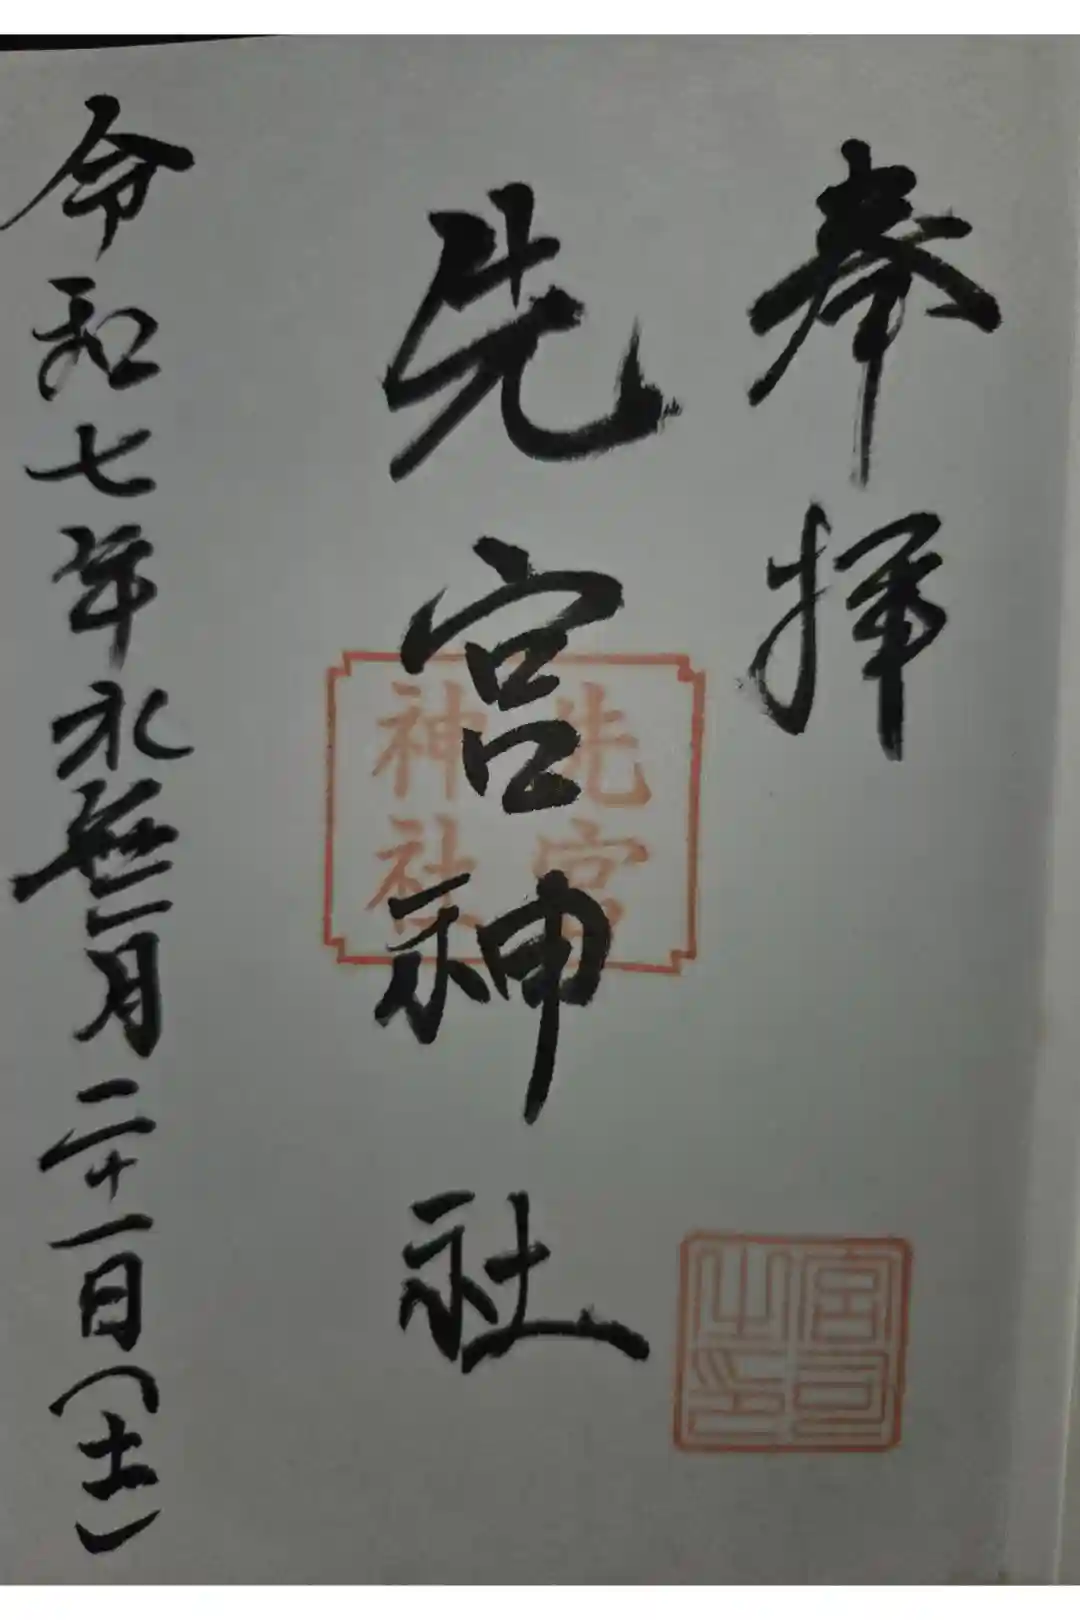 奉拝
先宮神社
先宮
神社
宮司
之印
令和七年水無月二十一日(土)